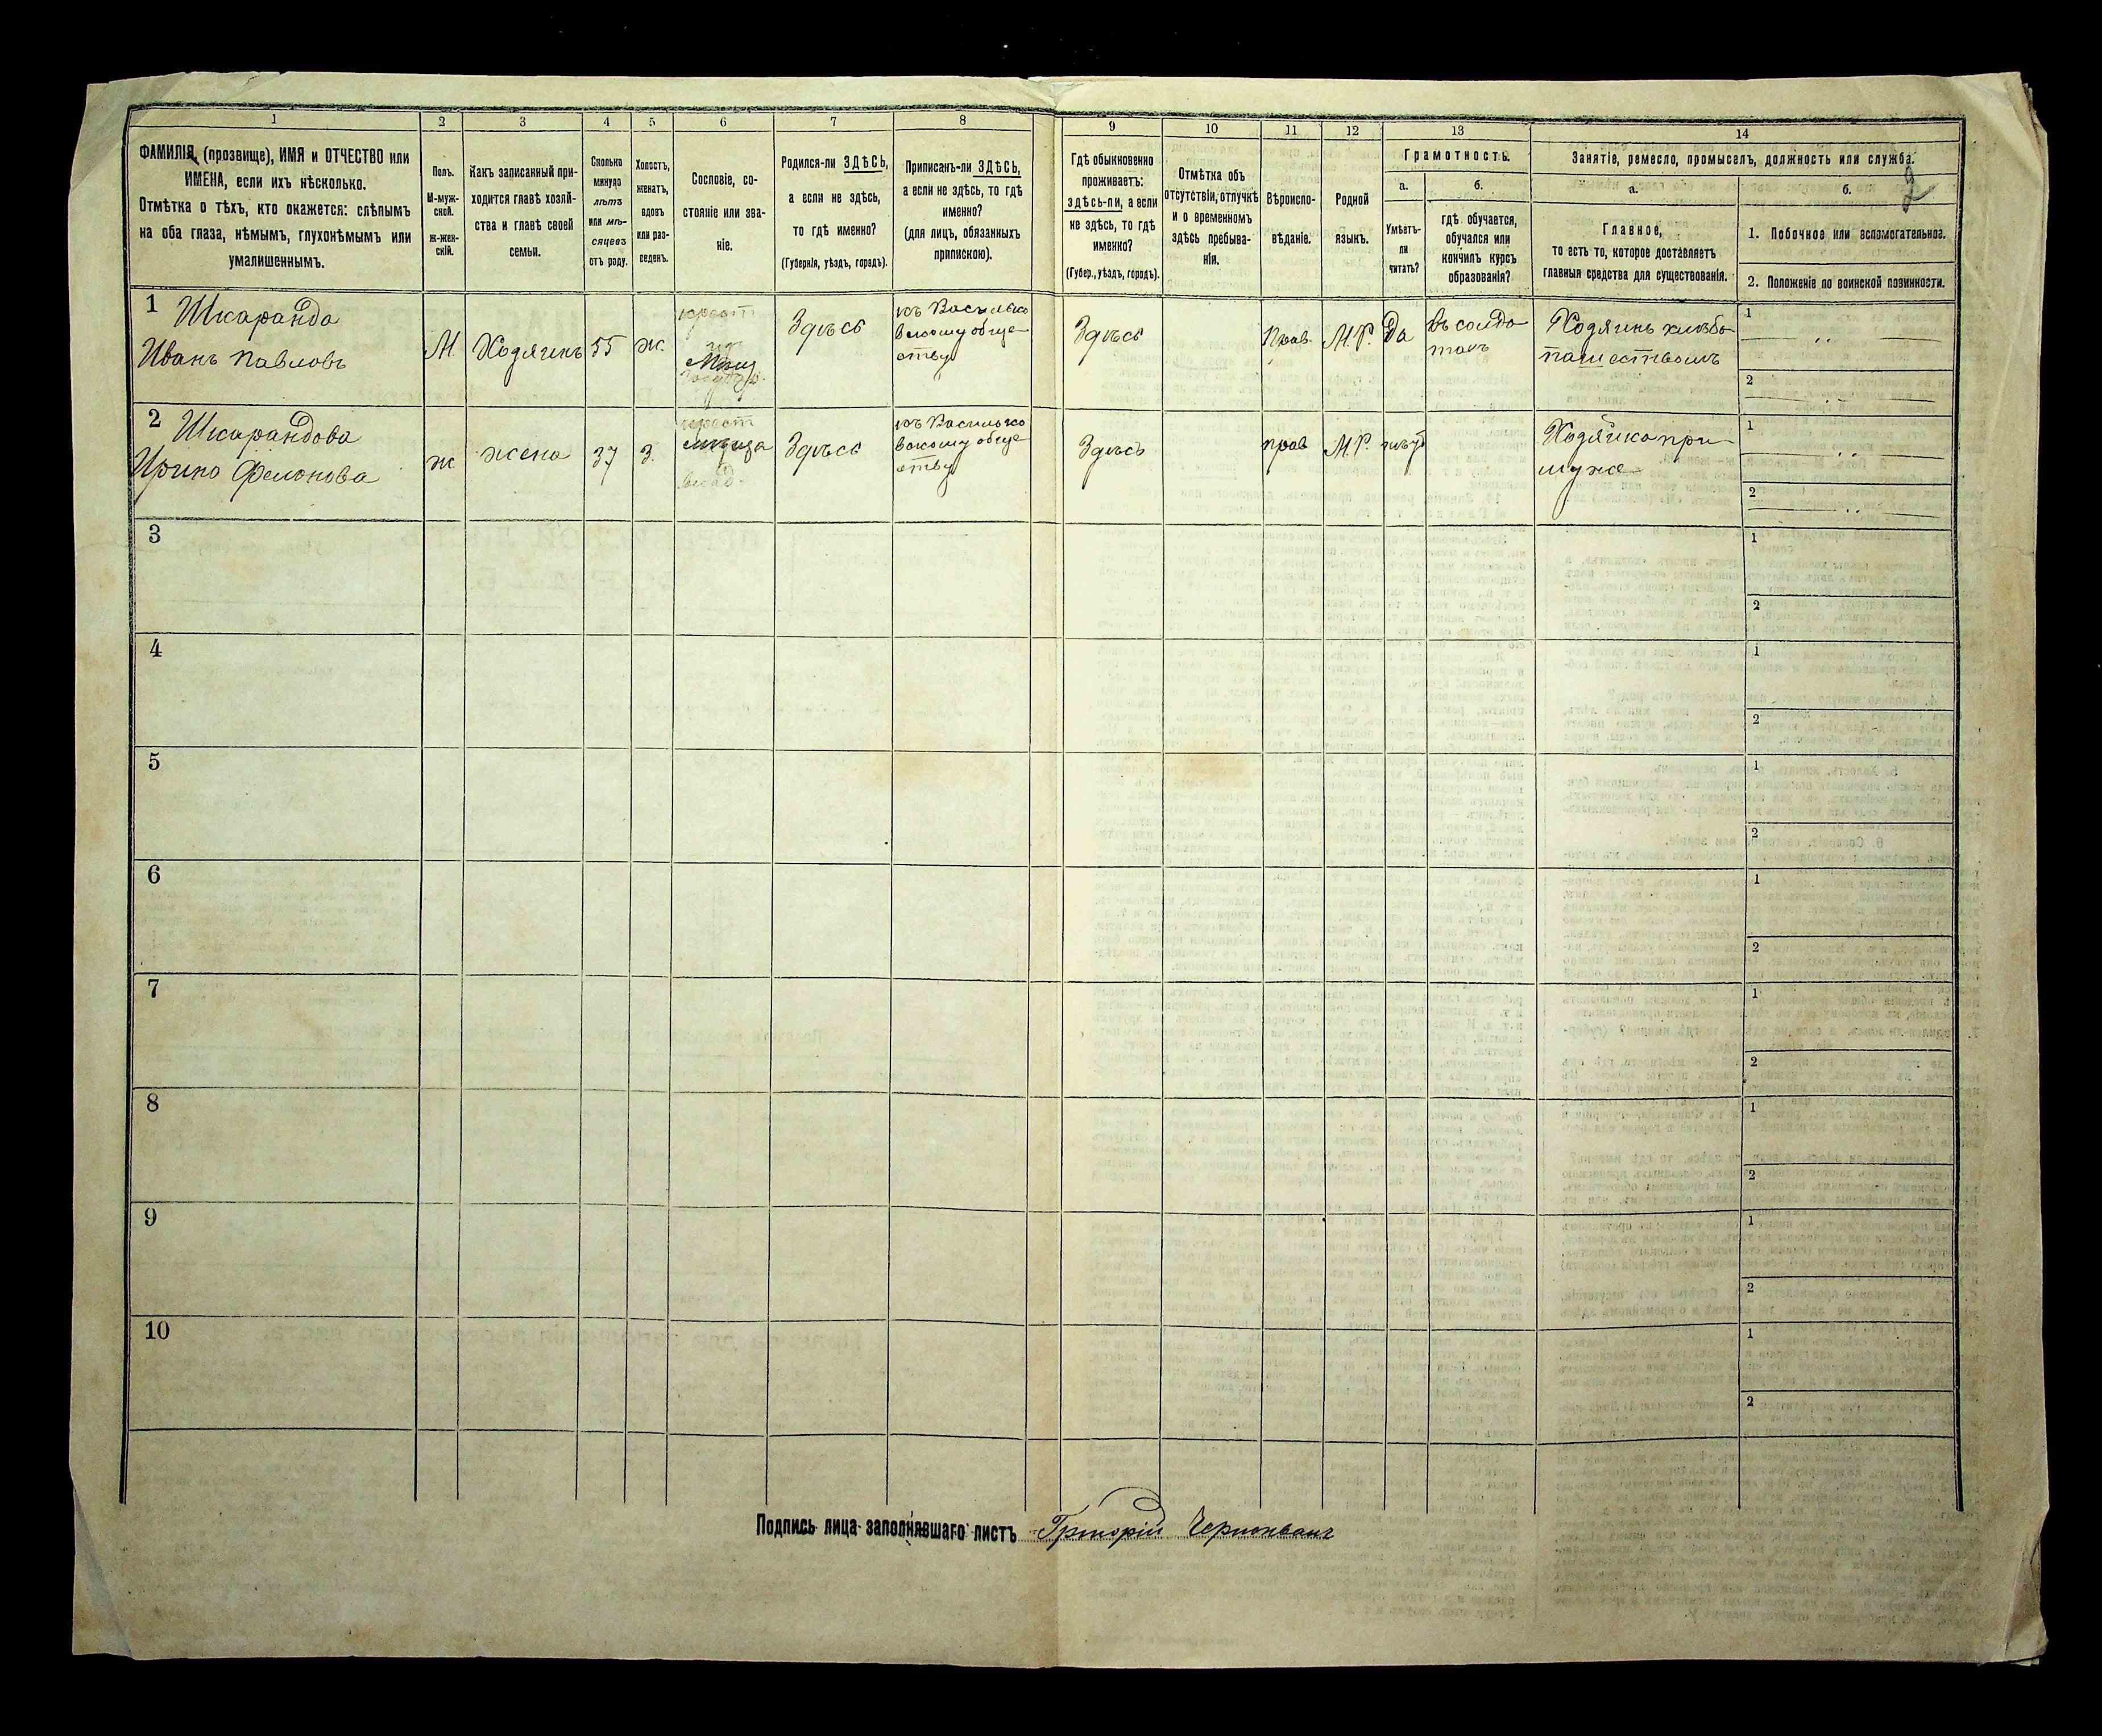 1 2 3 4 5 6 7 8 9 10 11 12 13 14
ФАМИЛІЯ, (прозвище), ИМЯ и ОТЧЕСТВО или
ИМЕНА, если ихъ нѣсколько.
Отмѣтка о тѣхъ, кто окажется: слѣпымъ
на оба глаза, нѣмымъ, глухонѣмымъ или
умалишеннымъ.
Полъ.
М-муж-
ской.
ж-жен-
скій.
Какъ записанный при-
ходится главѣ хозяй-
ства и главѣ своей
семьи.
Сколько
минуло
лѣтъ
или мѣ-
сяцевъ
отъ роду.
Холостъ,
женатъ,
вдовъ
или раз-
веденъ.
Сословіе, со-
стояніе или зва-
ніе.
Родился-ли ЗДѢСЬ,
а если не здѣсь,
то гдѣ именно?
(Губернія, уѣздъ, городъ).
Приписанъ-ли ЗДѢСЬ,
а если не здѣсь, то гдѣ
именно?
(для лицъ, обязанныхъ
припискою).
Гдѣ обыкновенно
проживаетъ:
здѣсь-ли, а если
не здѣсь, то гдѣ
именно?
(Губер., уѣздъ, городъ).
Отмѣтка объ
отсутствіи, отлучкѣ
и о временномъ
здѣсь пребыва-
ніи.
Вѣроиспо-
вѣданіе.
Родной
языкъ.
Грамотность.
а.
Умѣетъ-
ли
читать?
б.
гдѣ обучается,
обучался или
кончилъ курсъ
образованія?
Занятіе, ремесло, промыселъ, должность или служба.
а.
Главное,
то есть то, которое доставляетъ
главныя средства для существованія.
б.
2
1. Побочное или вспомогательное.
2. Положеніе по воинской повинности.
1 Шкаранда
Иванъ Павловъ
М.
Хозяинъ
55
ж.
крест
Здѣсь
къ Василько
вскому обще-
ству
Здѣсь
Прав.
М.Р.
Да
въ солда
тахъ
Хозяинъ хлѣбо
пашествомъ
1
2
2 Шкарандова
Ирина Филонова
ж
жена
37
З.
крест
влад.
Здѣсь
къ Василько
вскому обще
ству
Здѣсь
прав
М.Р.
нѣт
Хозяйка при
муже
1
2
3
1
2
4
1
2
5
1
2
6
1
2
7
1
2
8
1
2
9
1
2
10
1
2
Подпись лица заполнявшаго листъ Григорій